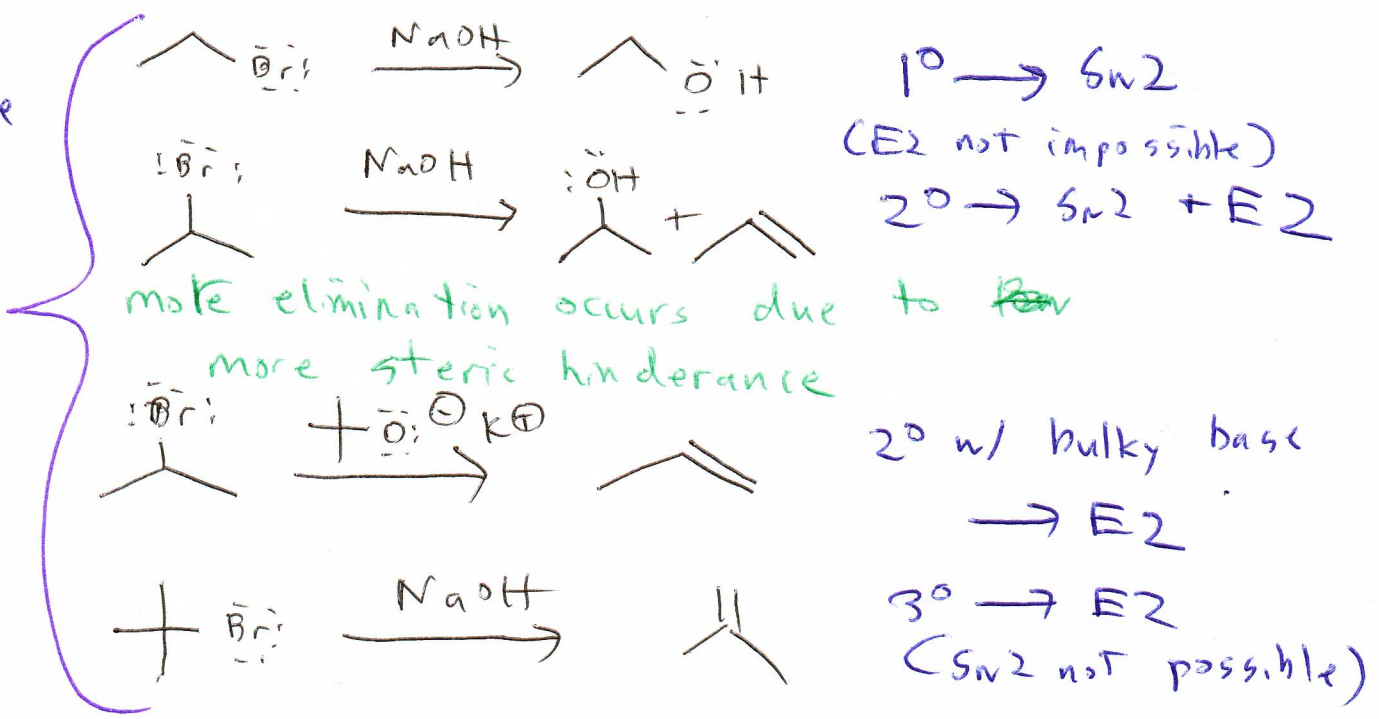 e
Br NaOH OH 1° → SN2
(E2 not impossible)
Br NaOH OH + 2° → SN2 + E2
more elimination occurs due to
more steric hinderance
Br O⊖ K⊕ 2° w/ bulky base
→ E2
Br NaOH 3° → E2
(SN2 not possible)